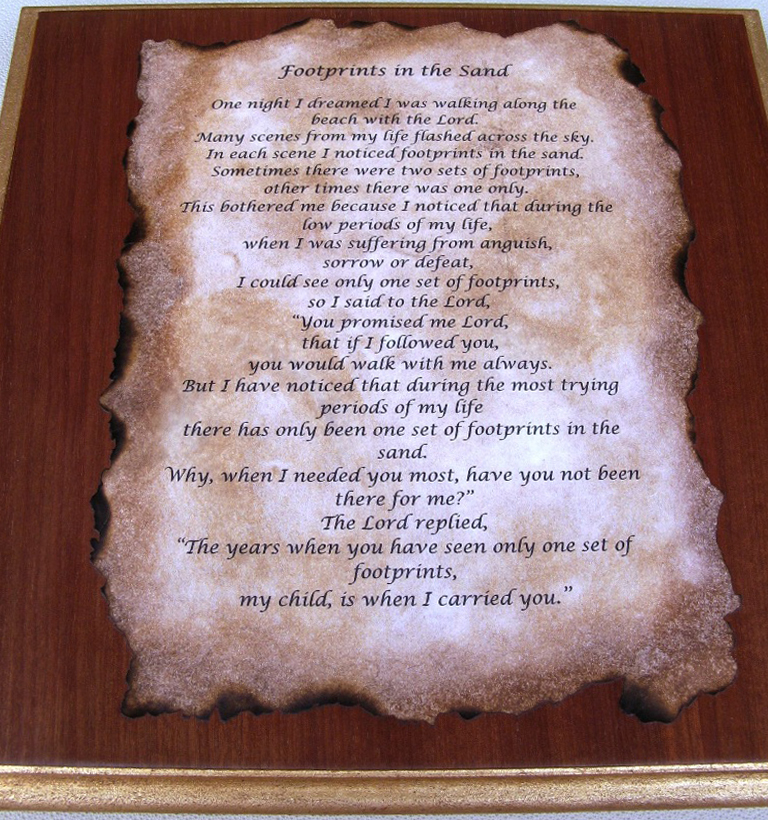 Footprints in the Sand
One night I dreamed I was walking along the
beach with the Lord.
Many scenes from my life flashed across the sky.
In each scene I noticed footprints in the sand.
Sometimes there were two sets of footprints,
other times there was one only.
This bothered me because I noticed that during the
low periods of my life,
when I was suffering from anguish,
sorrow or defeat,
I could see only one set of footprints,
so I said to the Lord,
“You promised me Lord,
that if I followed you,
you would walk with me always.
But I have noticed that during the most trying
periods of my life
there has only been one set of footprints in the
sand.
Why, when I needed you most, have you not been
there for me?”
The Lord replied,
“The years when you have seen only one set of
footprints,
my child, is when I carried you.”